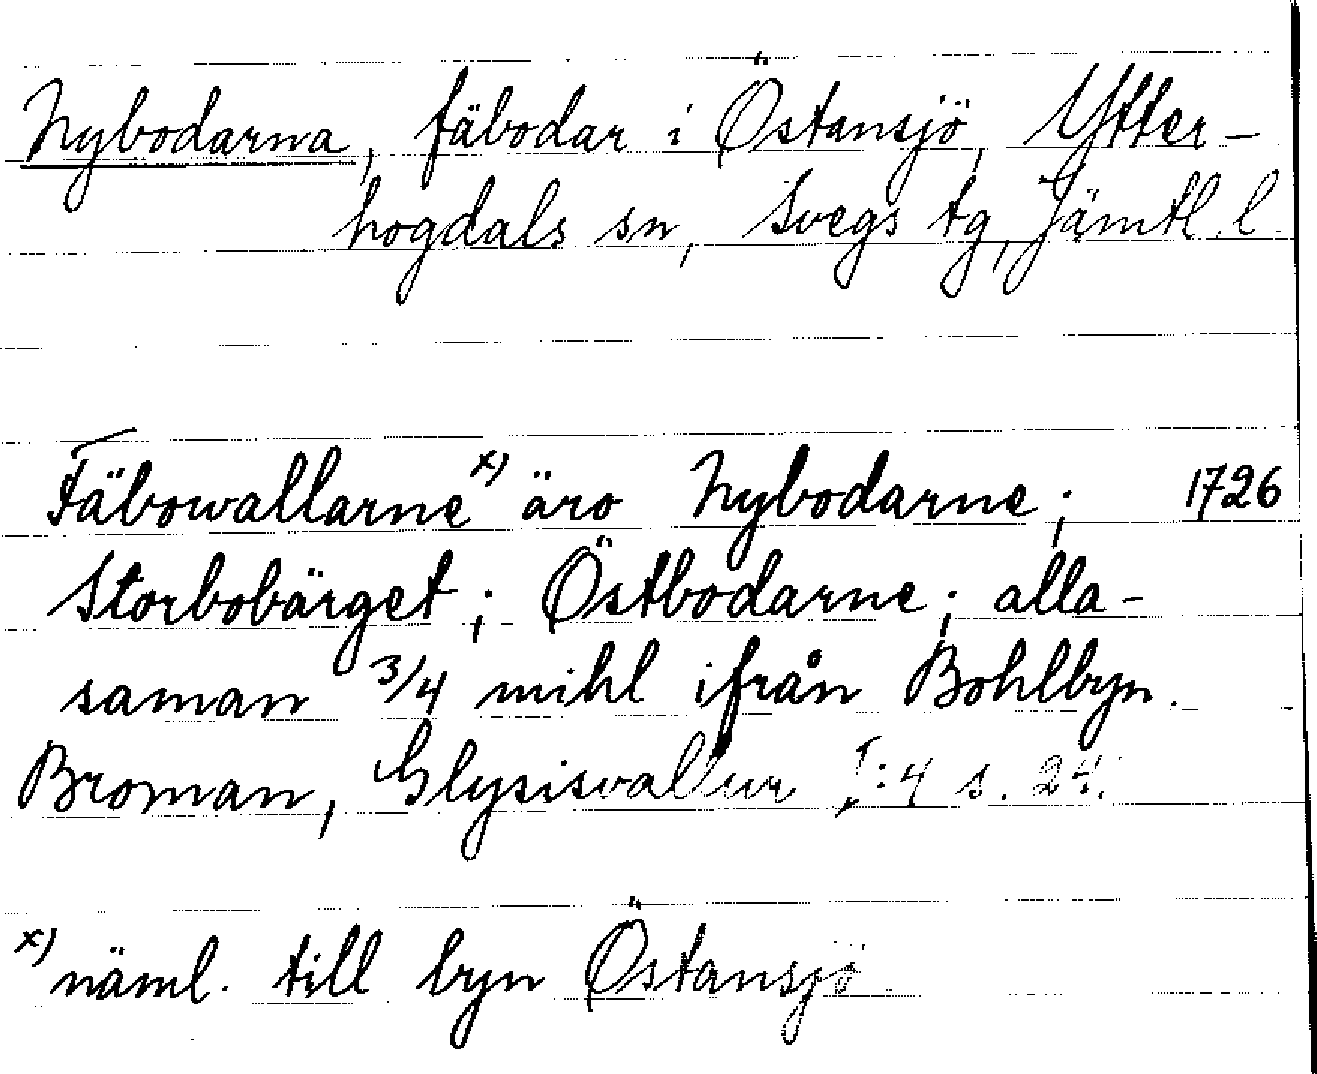 Nybodarna, fäbodar i Östansjö, Ytter-
hogdals sn, Svegs tg, Jämtl. l.
Fäbowallarne x) äro Nybodarne; 1726
Storbobärget; Östbodarne; alla-
saman 3/4 mihl ifrån Bohlbyn.
Broman, Glysisvallur I:4 s. 24.
x) näml. till byn Östansjö.